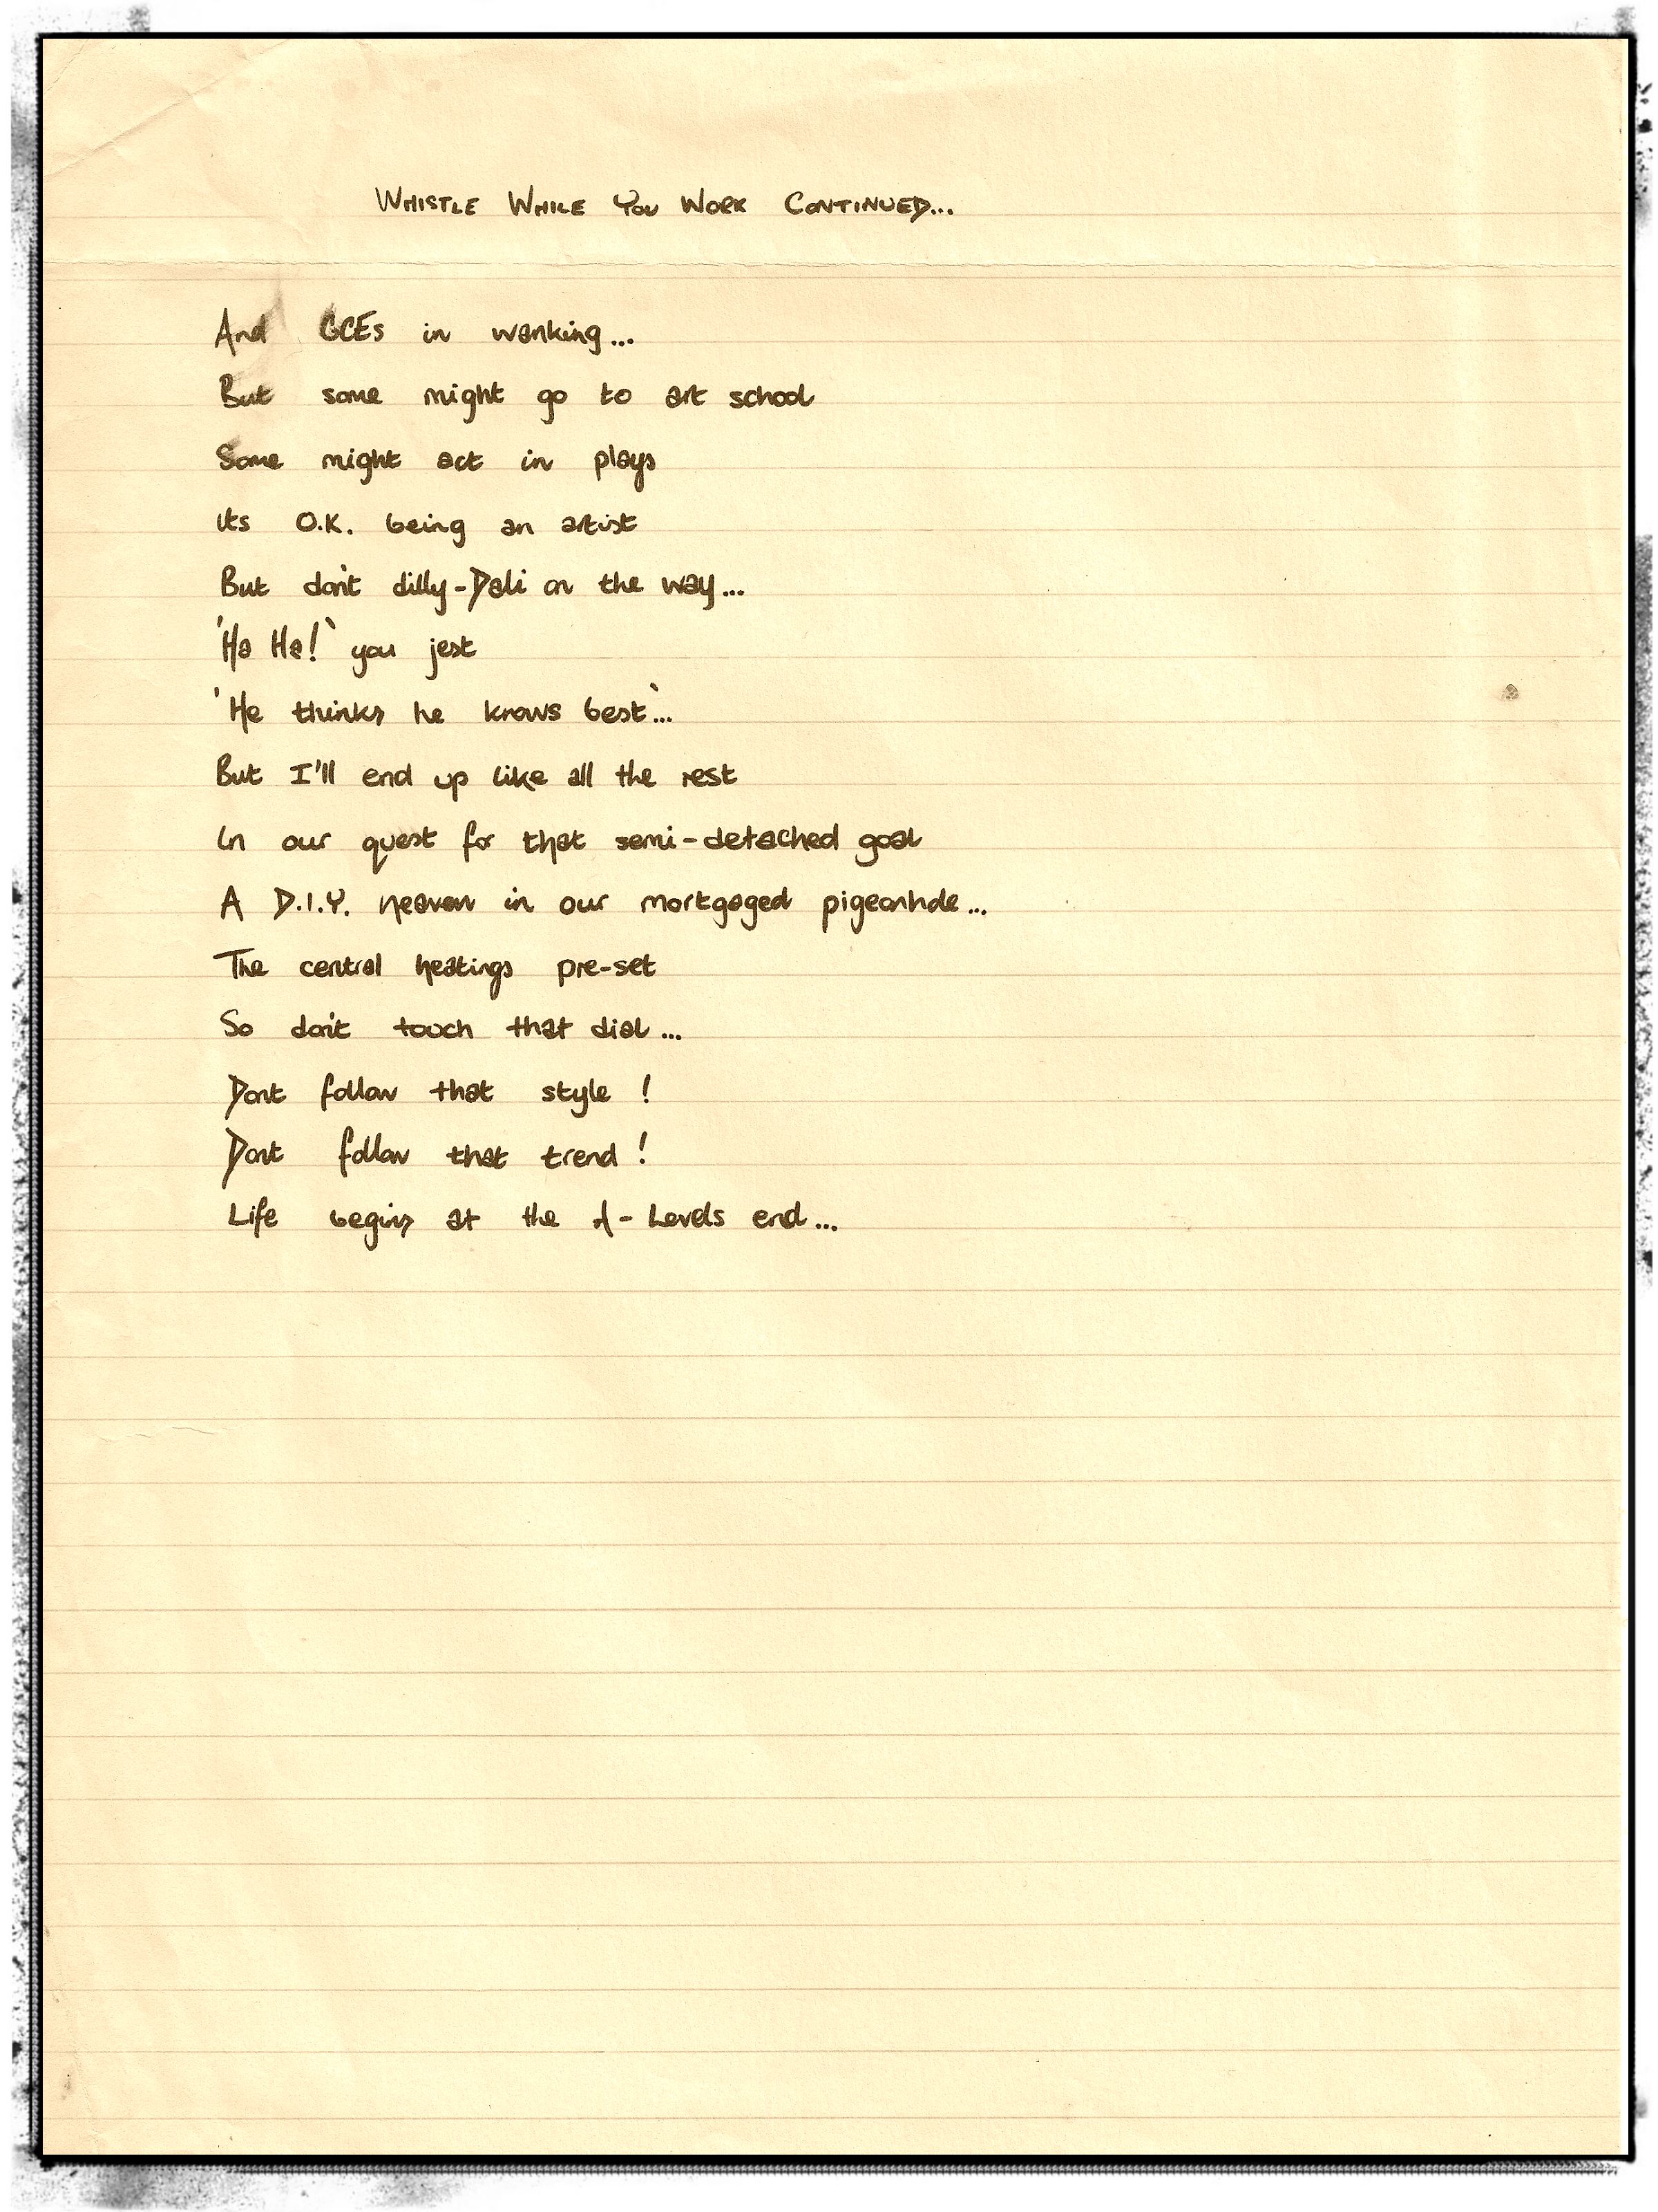 WHISTLE WHILE YOU WORK CONTINUED...
And GCEs in wanking...
But some might go to art school
Some might act in plays
Its O.K. being an artist
But don't dilly-Dali on the way...
'Ha Ha!' you jest
'He thinks he knows best'...
But I'll end up like all the rest
In our quest for that semi-detached goal
A D.I.Y. heaven in our mortgaged pigeonhole...
The central heatings pre-set
So don't touch that dial...
Dont follow that style!
Dont follow that trend!
Life begins at the A-Levels end...